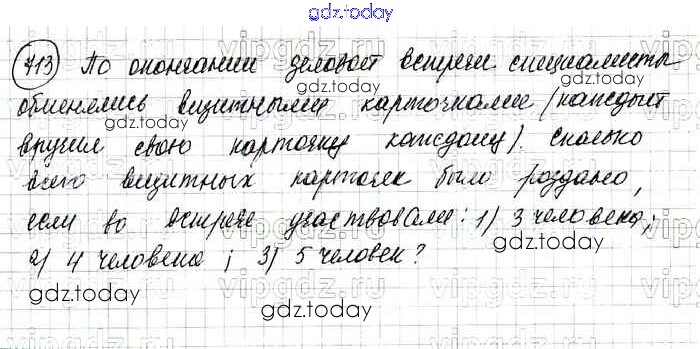 gdz.today
713) По окончании деловой встречи специалисты
gdz.today
обменялись визитными карточками (каждый
gdz.today
вручил свою карточку каждому). Сколько
gdz.today
всего визитных карточек было роздано,
если во встрече участвовали: 1) 3 человека;
gdz.today
2) 4 человека; 3) 5 человек?
gdz.today
gdz.today